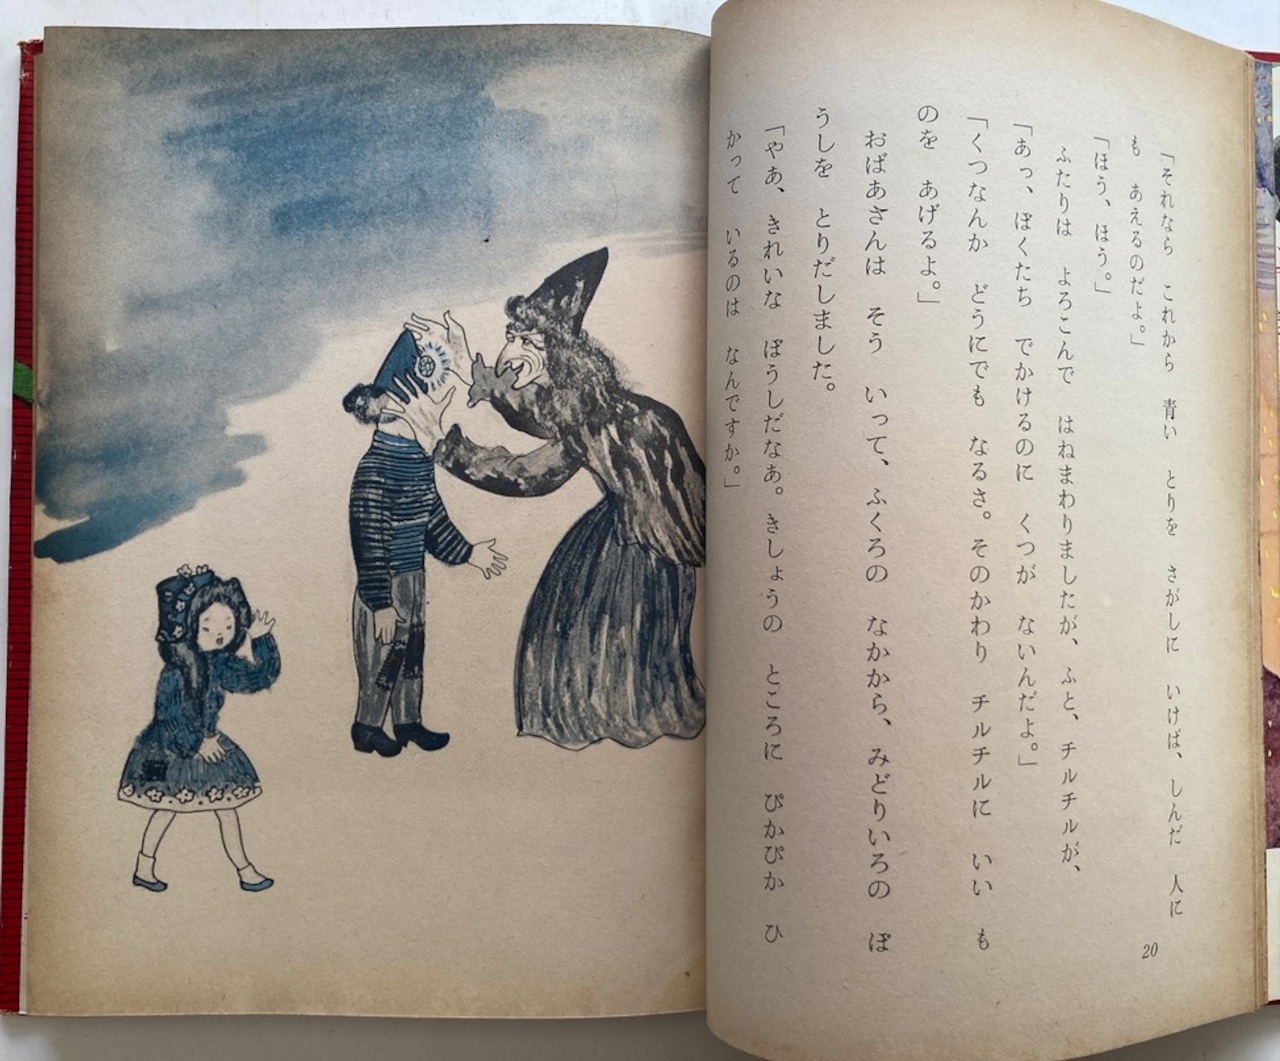 「それなら　これから　青い　とりを　さがしに　いけば、しんだ　人に
も　あえるのだよ。」
「ほう、ほう。」
ふたりは　よろこんで　はねまわりましたが、ふと、チルチルが、
「あっ、ぼくたち　でかけるのに　くつが　ないんだよ。」
「くつなんか　どうにでも　なるさ。そのかわり　チルチルに　いい　も
のを　あげるよ。」
おばあさんは　そう　いって、ふくろの　なかから、みどりいろの　ぼ
うしを　とりだしました。
「やあ、きれいな　ぼうしだなあ。きしょうの　ところに　ぴかぴか　ひ
かって　いるのは　なんですか。」
20